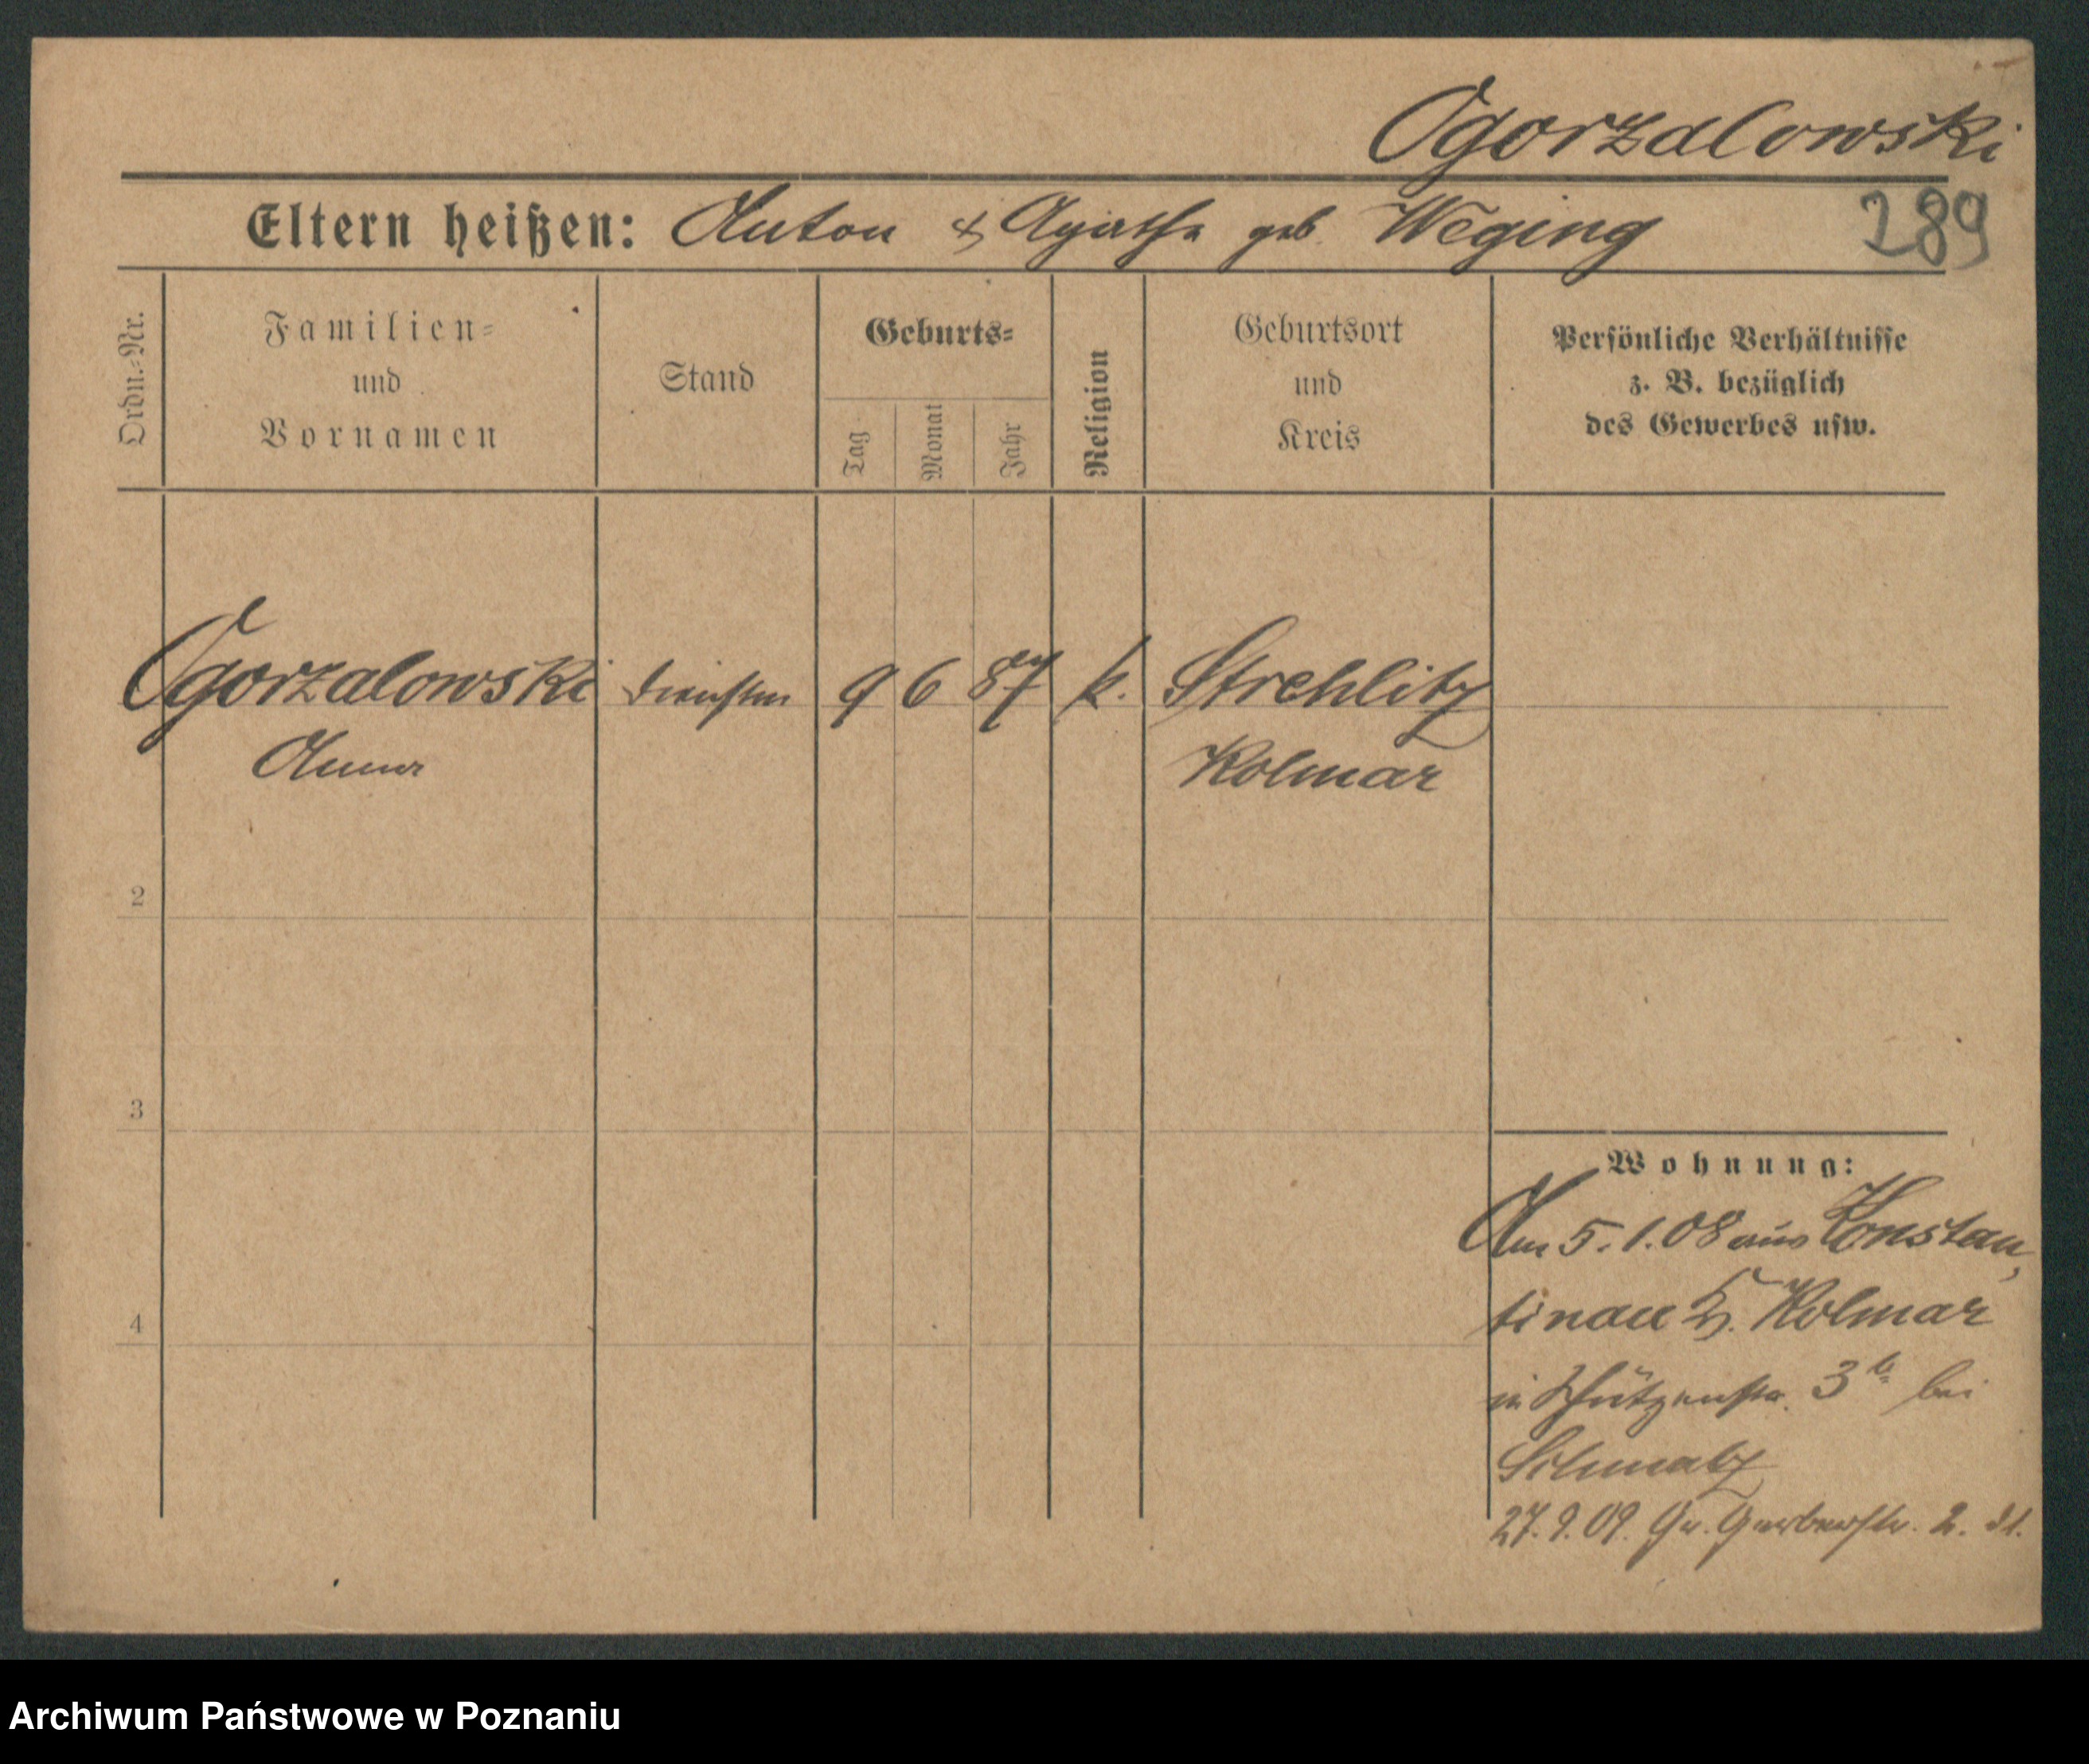 Ogorzalowski
Eltern heißen: Anton & Agathe geb. Weging
289
Ordn.-Nr.
Familien-
und
Vornamen
Stand
Geburts-
Tag
Monat
Jahr
Religion
Geburtsort
und
Kreis
Persönliche Verhältnisse
z. B. bezüglich
des Gewerbes usw.
Ogorzalowski 9 6 87 k. Strehlitz
Anna Kolmar
2
3
4
Wohnung:
Am 5.1.08 aus Konstan
tinau Kr. Kolmar
in Schützenstr. 3b bei
Schmalz
27.9.09. Gr. Gerberstr. 2.
Archiwum Państwowe w Poznaniu